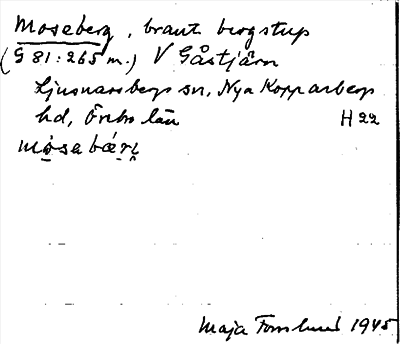 Moseberg, brant bergstup
(G 81:265 m.) V Gåstjärn
Ljusnarsbergs sn, Nya Kopparbergs
hd, Örebro län H 22
mo̱sa bæ̣rị
Maja Forslund 1945